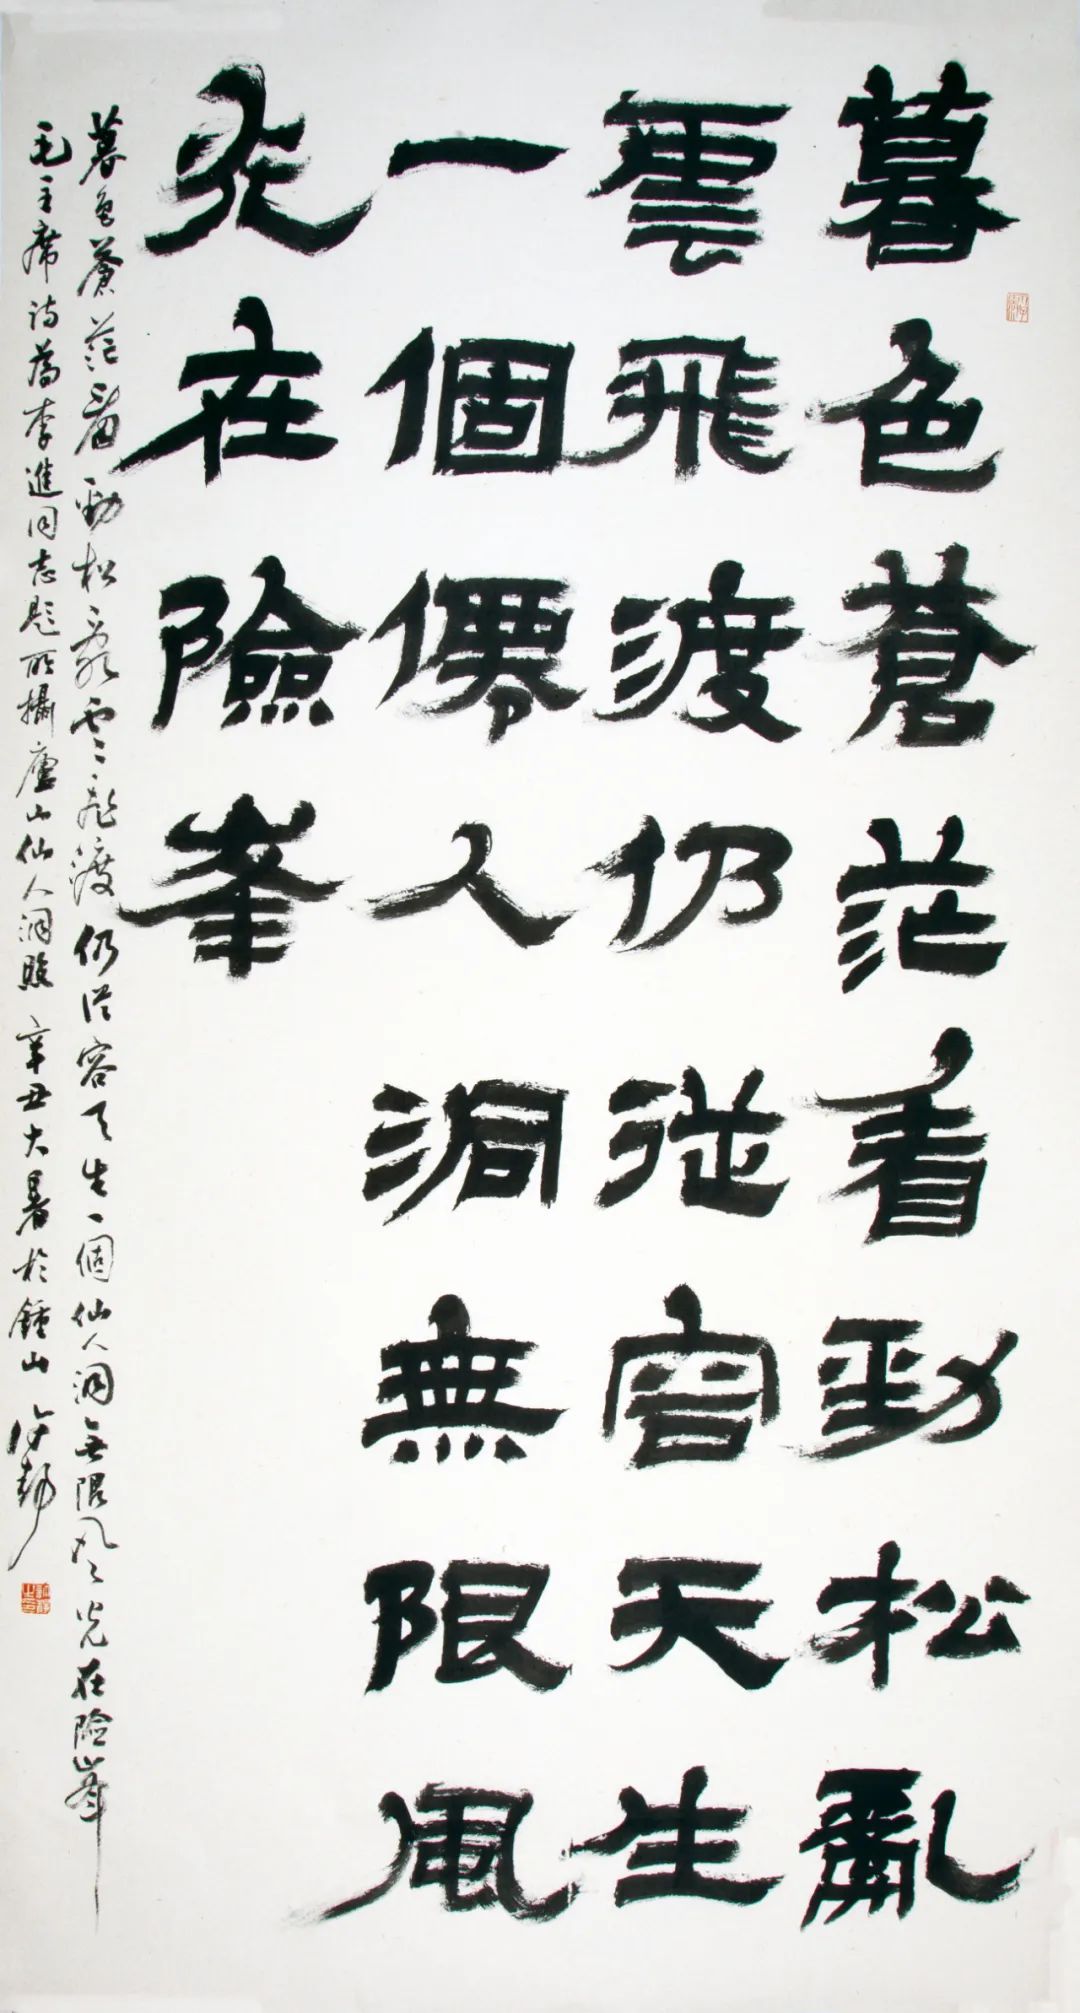 暮色蒼茫看勁松亂
雲飛渡仍從容天生
一個僊人洞無限風
光在險峯
暮色蒼茫看勁松亂雲飛渡仍從容天生一個仙人洞無限風光在險峯
毛主席詩為李進同志題所攝廬山仙人洞照 辛丑大暑於鍾山